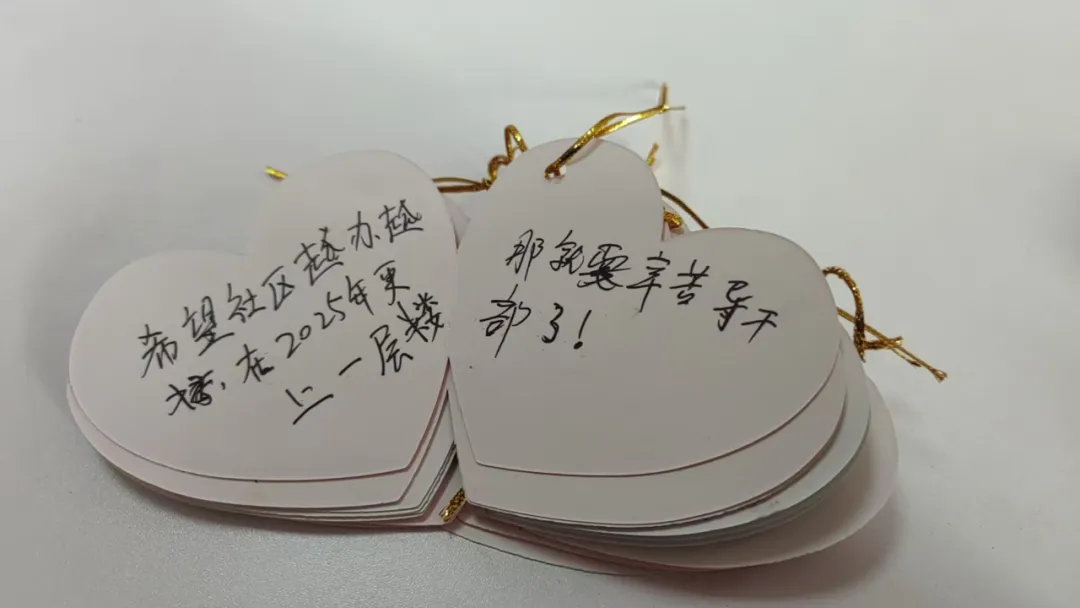 希望社区越办越
,在2025年更
上一层楼
那就要辛苦导干
部了!